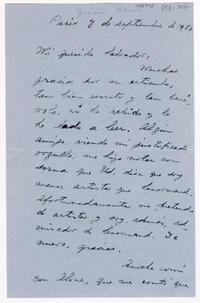 Paris 7 de septiembre de 1950
Mi querido Salvador:
Muchas
gracias por su artículo,
tan bien escrito y tan bené-
volo. Lo he releído y lo
he dado a leer. Algún
amigo, viendo mi justificado
orgullo, me hizo notar con
sorna que Ud. dice que soy
menos artista que Lenormand.
Afortunadamente no pretendo
de artista y soy además, ad-
mirador de Lenormand. De
nuevo, gracias.
Anoche comí
con Alone, que me contó que